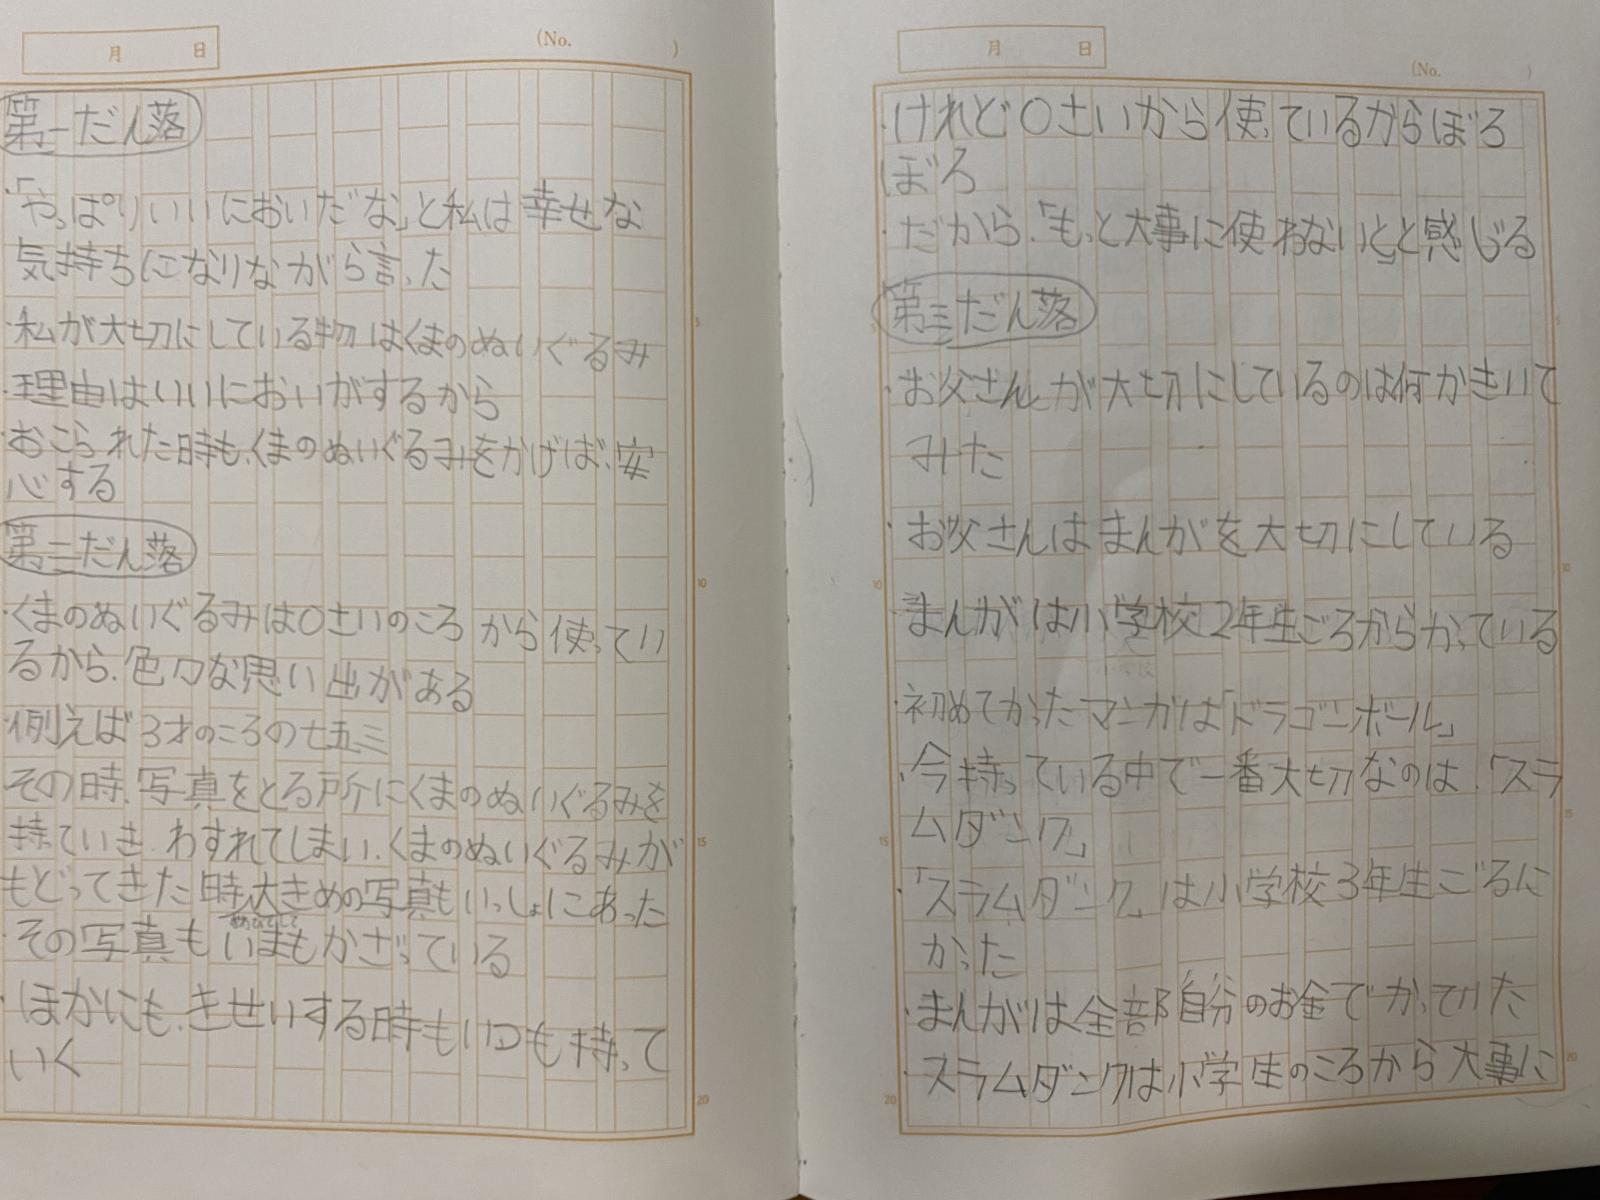 月 日
(No. )
第一だん落
・「やっぱりいいにおいだな」と私は幸せな
気持ちになりながら言った
・私が大切にしている物はくまのぬいぐるみ
・理由はいいにおいがするから
・おこられた時も、くまのぬいぐるみをかげば、安
心する
第二だん落
・くまのぬいぐるみは〇さいのころから使ってい
るから、色々な思い出がある
・例えば3才のころの七五三
その時、写真をとる所にくまのぬいぐるみを
持ていき、わすれてしまい、くまのぬいぐるみが
もどってきた時、大きめの写真もいっしょにあった
・その写真もいまもかざっている
・ほかにも、きせいする時もいつも持って
いく
5
10
15
20
月 日
(No. )
・けれど〇さいから使っているからぼろ
ぼろ
・だから、「もっと大事に使わないと」と感じる
第三だん落
・お父さんが大切にしているのは何かきいて
みた
・お父さんはまんがを大切にしている
・まんがは小学校2年生ごろからかっている
初めてかったマンガは「ドラゴンボール」
・今持っている中で一番大切なのは、「スラ
ムダンク」
・「スラムダンク」は小学校3年生ごろに
かった
・まんがは全部自分のお金でかっていた
・スラムダンクは小学生のころから大事に
5
10
15
20